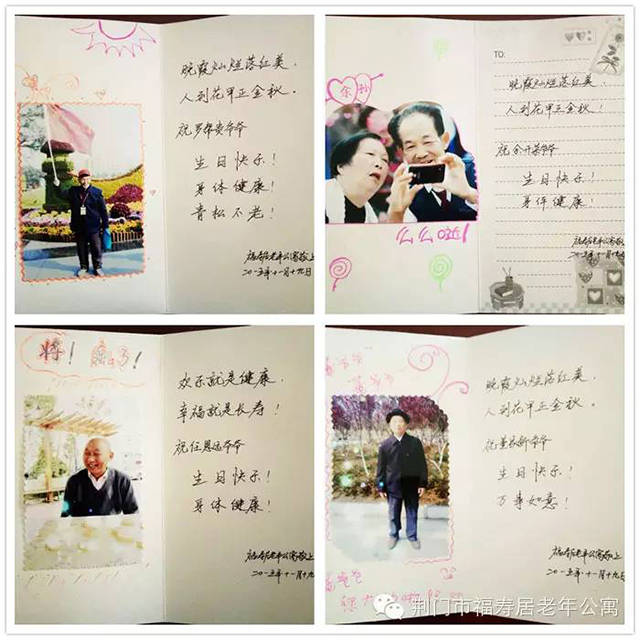 晚霞灿烂落红美，
人到花甲正金秋。
祝罗年贵爷爷
生日快乐！
身体健康！
青松不老！
福寿居老年公寓敬上
二〇一五年十一月十九日
余 孙
TO:
晚霞灿烂落红美，
人到花甲正金秋！
祝余开荣爷爷
生日快乐！
身体健康！
福寿居老年公寓敬上
二〇一五年十一月十九日
将！
欢乐就是健康，
幸福就是长寿！
祝任恩远爷爷
生日快乐！
身体健康！
福寿居老年公寓敬上
二〇一五年十一月十九日
晚霞灿烂落红美，
人到花甲正金秋。
祝董家新爷爷
生日快乐！
万事如意！
福寿居老年公寓敬上
二〇一五年十一月十九日
荆门市福寿居老年公寓